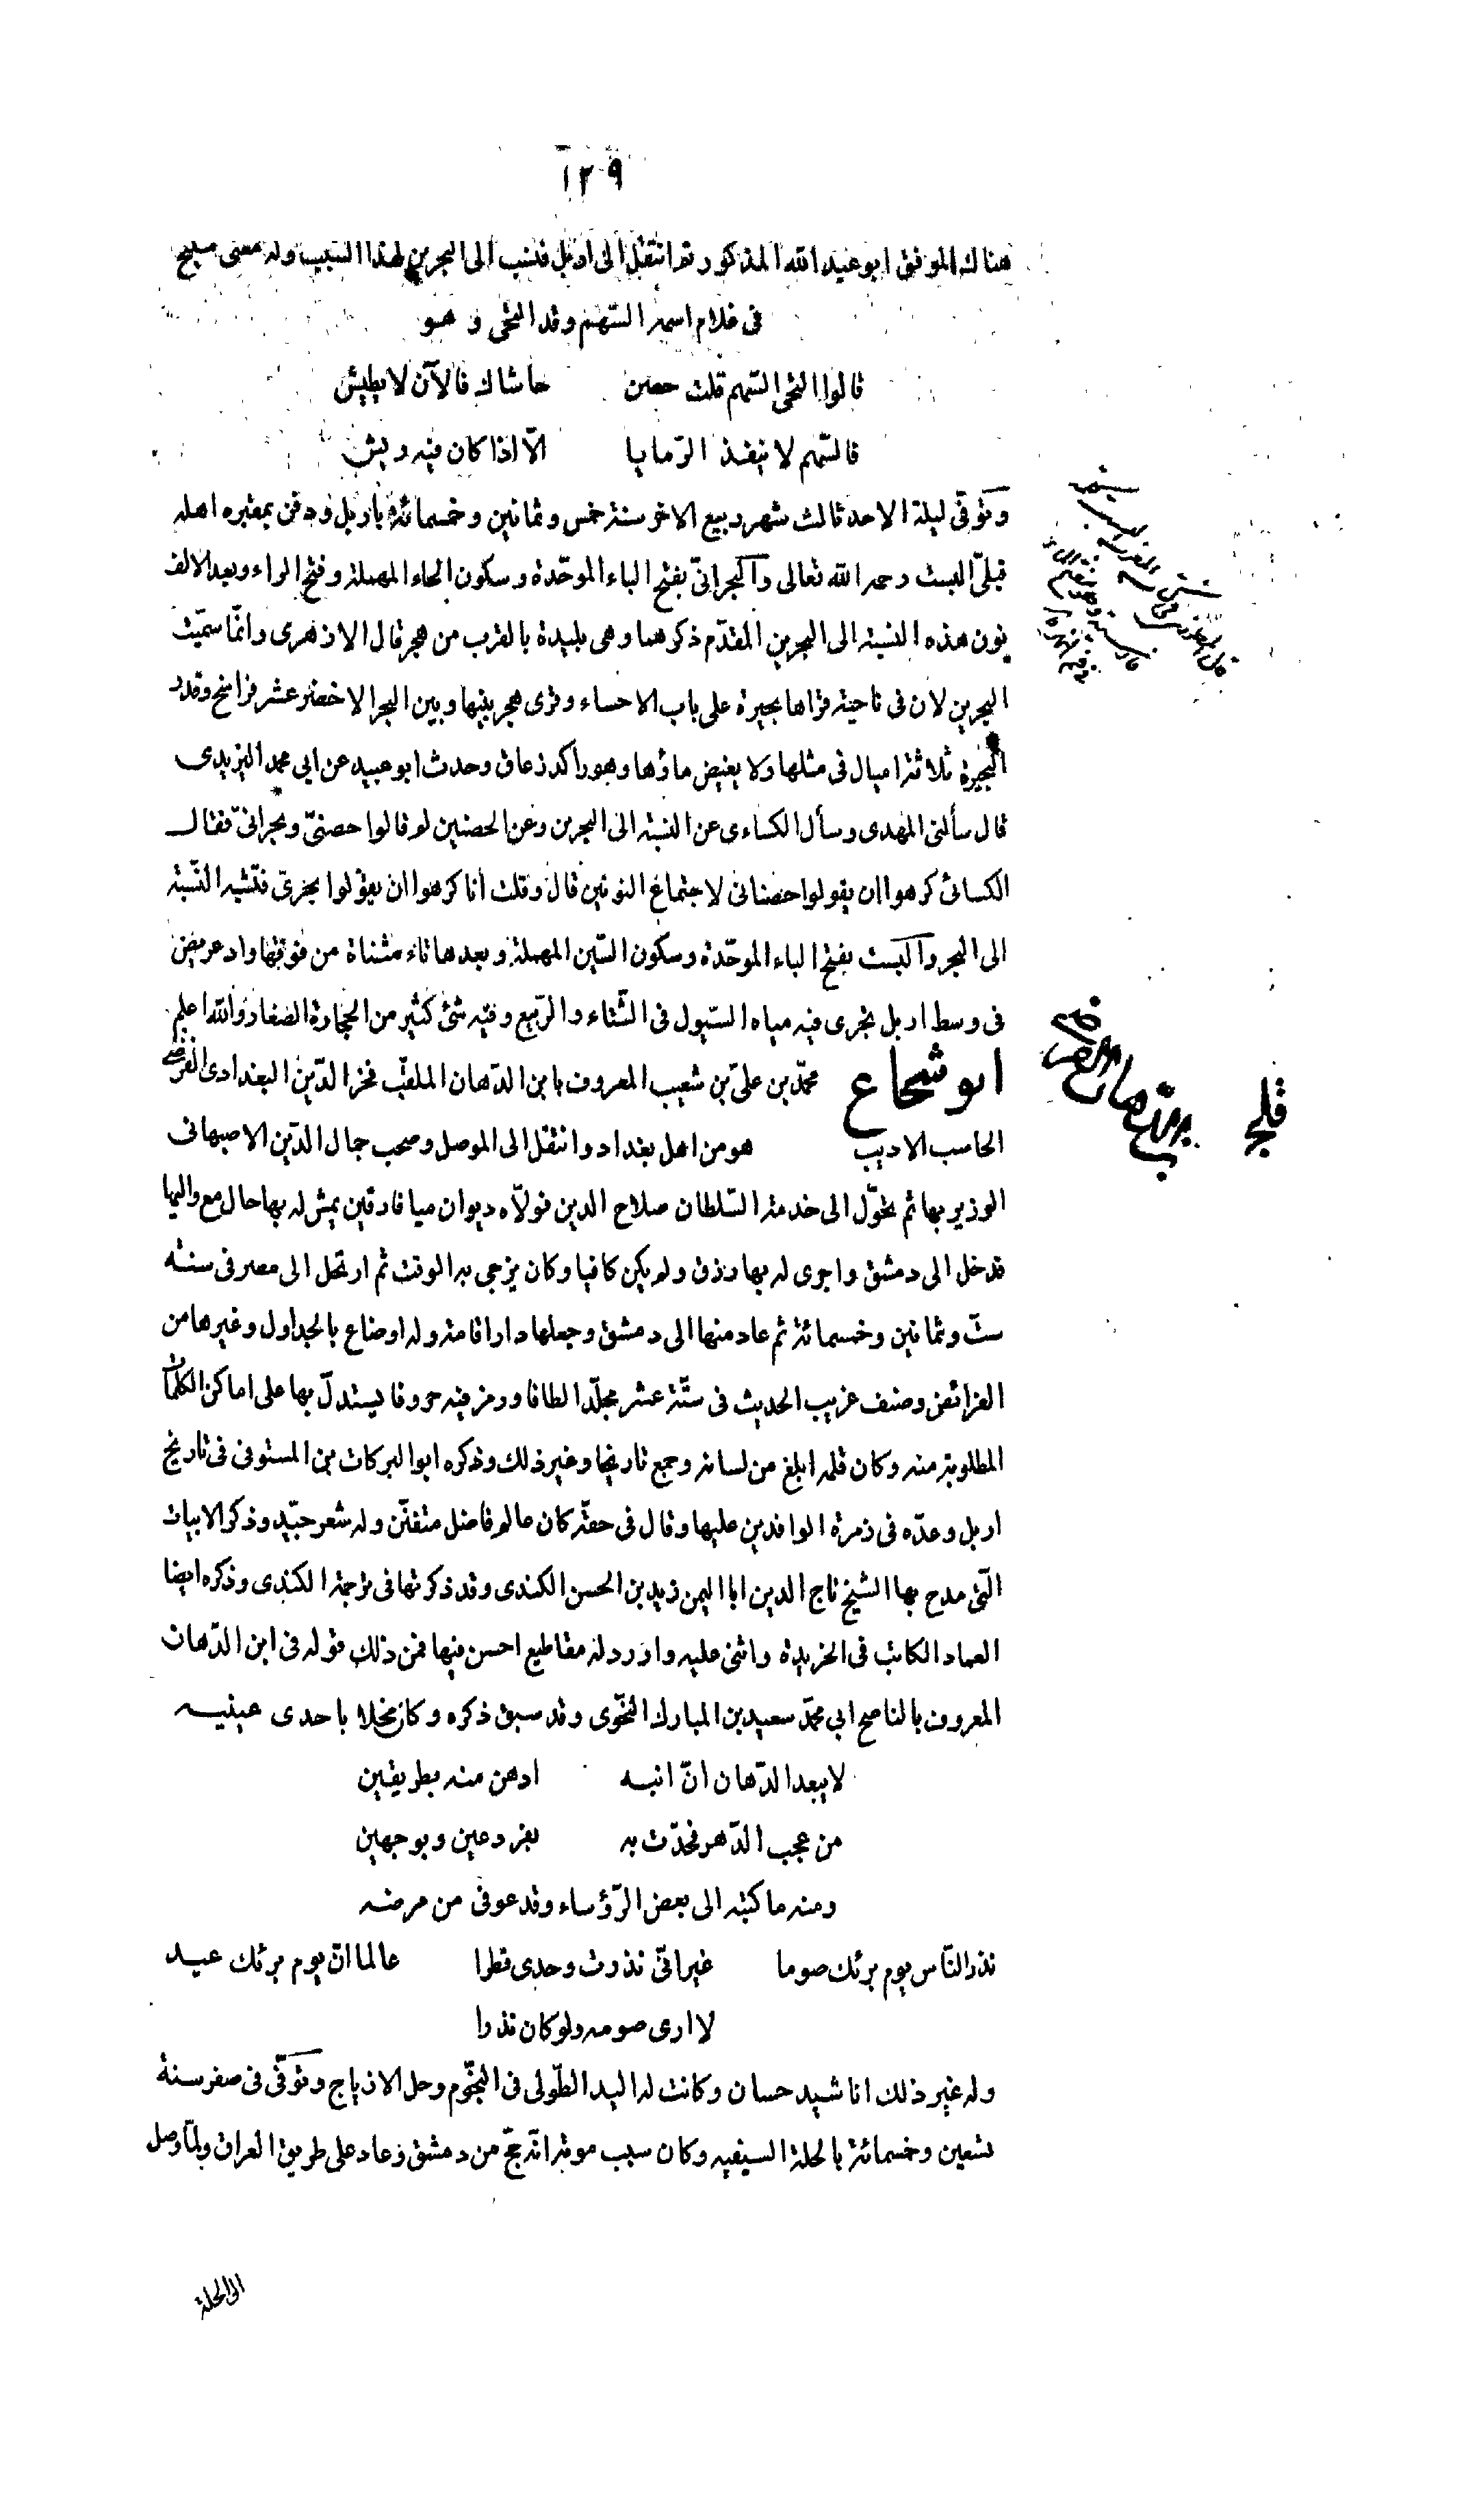 ١٢٩
هناك الموفق ابو عبد الله المذكور قد انتقل الى اربل فنسب الى البحرين لهذا السبب وله معنى مليح
فى غلام اسمه السّهم وقد التحى وهو
قالوا التحى السّهم قلت حصن حاشاك فالآن لا يطيش
فالسّهم لا ينفذ الرّمايا الّا اذا كان فيه ريش
وتوفّى ليلة الاحد ثالث شهر ربيع الاخر سنة خمس وثمانين وخمسمائة باربل ودفن بمقبره اهله
قبلىّ البست رحمه الله تعالى والبحرانىّ بفتح الباء الموحّدة وسكون الحاء المهملة وفتح الراء وبعد الالف
نون هذه النسبة الى البحرين المقدّم ذكرها وهى بليدة بالقرب من هجر قال الازهرى وانّما سمّيت
البحرين لان فى ناحية قراها بحيرة على باب الاحساء وقرى هجر بينها وبين البحر الاخضر عشر فراسخ وقدر
البحيرة ثلاثة اميال فى مثلها ولا يغيض ماؤها وهو راكد زعاق وحدث ابو عبيد عن ابى محمد اليزيدى
قال سألنى المهدى وسأل الكساءى عن النسبة الى البحرين وعن الحصنين لم قالوا حصنىّ وبحرانىّ فقال
الكسائى كرهوا ان يقولوا حصنانى لاجتماع النونين قال وقلت انا كرهوا ان يقولوا بحرىّ فتشبه النّسبة
الى البحر والبست بفتح الباء الموحّدة وسكون السّين المهملة وبعدها تاء مثناة من فوقها واد عريض
فى وسط اربل يجرى فيه مياه السّيول فى الشّتاء والرّبيع وفيه شئ كثير من الحجارة الصغار والله اعلم
ابو شجاع محمّد بن علىّ بن شعيب المعروف بابن الدّهان الملقّب فخر الدّين البغدادى الفرضى
الحاسب الاديب هو من اهل بغداد وانتقل الى الموصل وصحب جمال الدّين الاصبهانى
الوزير بها ثم تحوّل الى خدمة السّلطان صلاح الدين فولّاه ديوان ميافارقين يمش له بها حال مع واليها
فدخل الى دمشق واجرى له بها رزق ولم يكن كافيا وكان يزجى به الوقت ثم ارتحل الى مصر فى سنة
ستّ وثمانين وخمسمائة ثم عاد منها الى دمشق وجعلها دار اقامة وله اوضاع بالجداول وغيرها من
الفرائض وصنف غريب الحديث فى ستّة عشر مجلّدا لطافا ورمز فيه حروفا يستدلّ بها على اماكن الكلمات
المطلوبة منه وكان قلمه ابلغ من لسانه وجمع تاريخا وغير ذلك وذكره ابو البركات بن المستوفى فى تاريخ
اربل وعدّه فى زمرة الوافدين عليها وقال فى حقّه كان عالم فاضل متفنّن وله شعر جيّد وذكر الابيات
الّتى مدح بها الشيخ تاج الدين ابا اليمن زيد بن الحسن الكندى وقد ذكرتها فى ترجمة الكندى وذكره ايضا
العماد الكاتب فى الخريدة واثنى عليه واورد له مقاطيع احسن فيها فمن ذلك قوله فى ابن الدّهان
المعروف بالناصح ابى محمّد سعيد بن المبارك النحّوى وقد سبق ذكره وكان مخلا باحدى عينيه
لا يبعد الدّهان انّ ابنه ادهن منه بطريقين
من عجب الدّهر فحدّث به بفرد عين وبوجهين
ومنه ما كتبه الى بعض الرّؤساء وقد عوفى من مرضه
نذر النّاس يوم برئك صوما غير انّى نذرت وحدى فطرا عالما انّ يوم برئك عيد
لا ارى صومه ولو كان نذرا
وله غير ذلك اناشيد حسان وكانت له اليد الطّولى فى النجّوم وحل الازياج وتوفّى فى صفر سنة
تسعين وخمسمائة بالحلة السيفيه وكان سبب موته انّه حجّ من دمشق وعاد على طريق العراق ولمّا وصل
الى الحلة